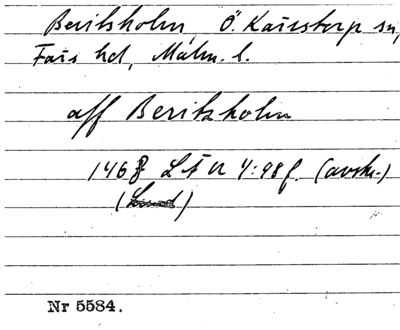 Beritsholm, Ö. Kairstorp sn,
Färs hd, Malm. l.
aff Beritzholm
146 LÄU 4:98 f. (avskr.)
(Lund)
Nr 5584.